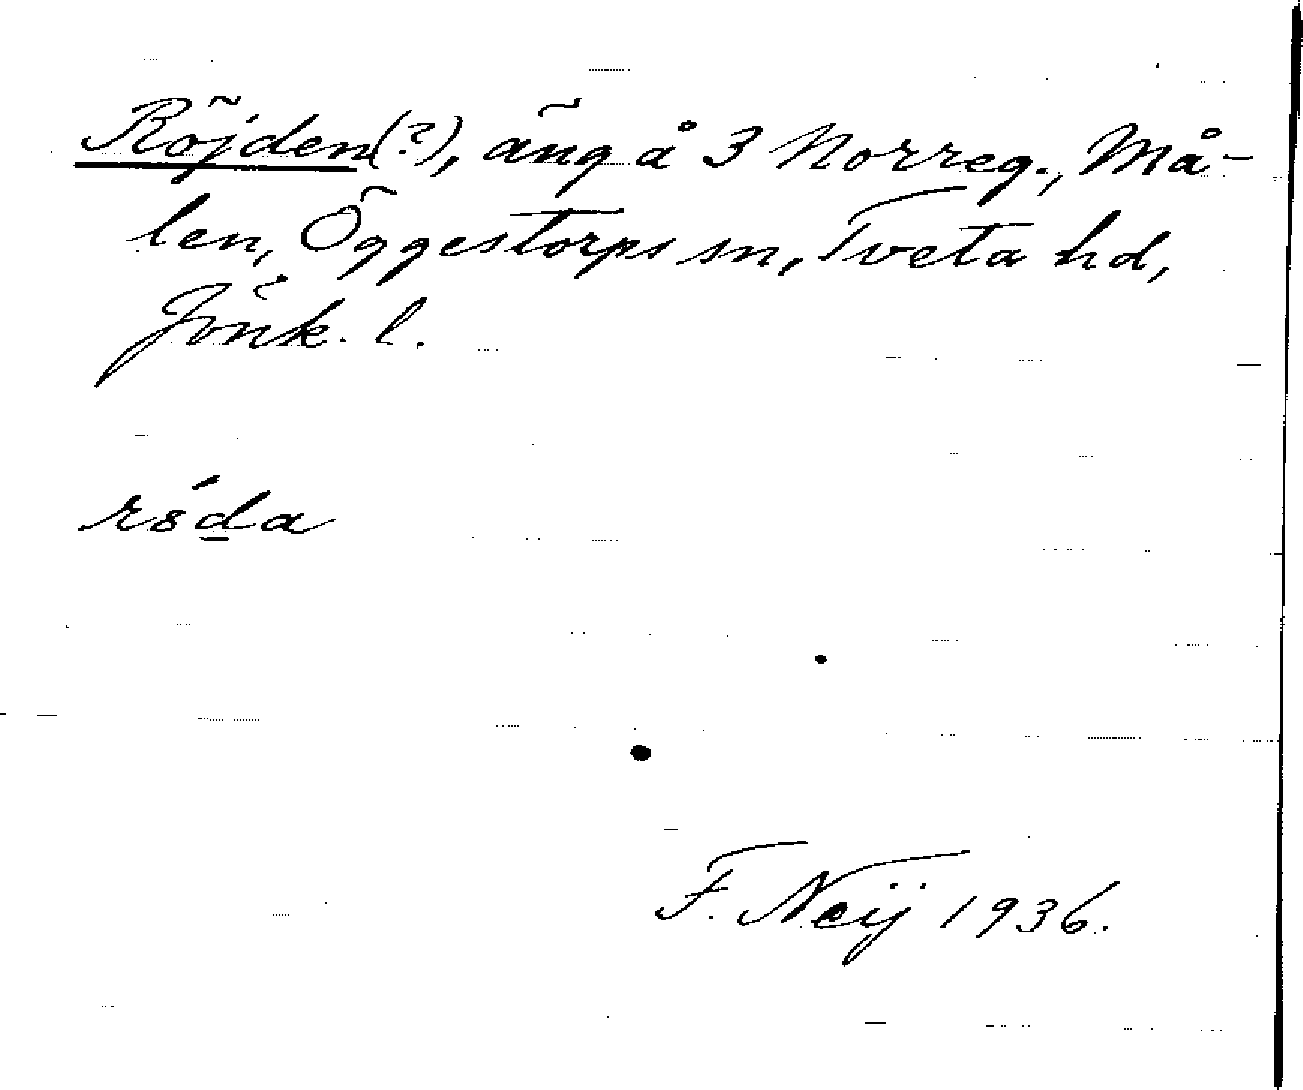 Röjden(?), äng å 3 Norreg., Må-
len, Öggestorps sn, Tveta hd,
Jönk. l.
F. Neij 1936.